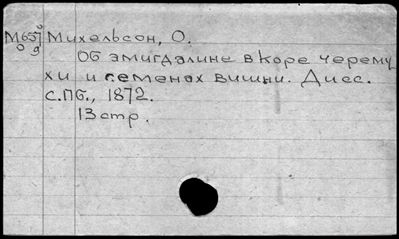 М657 Михельсон, О.
Об амигдалине в коре черему
хи и семенах вишни. Дисс.
с.Пб., 1872.
13 стр.